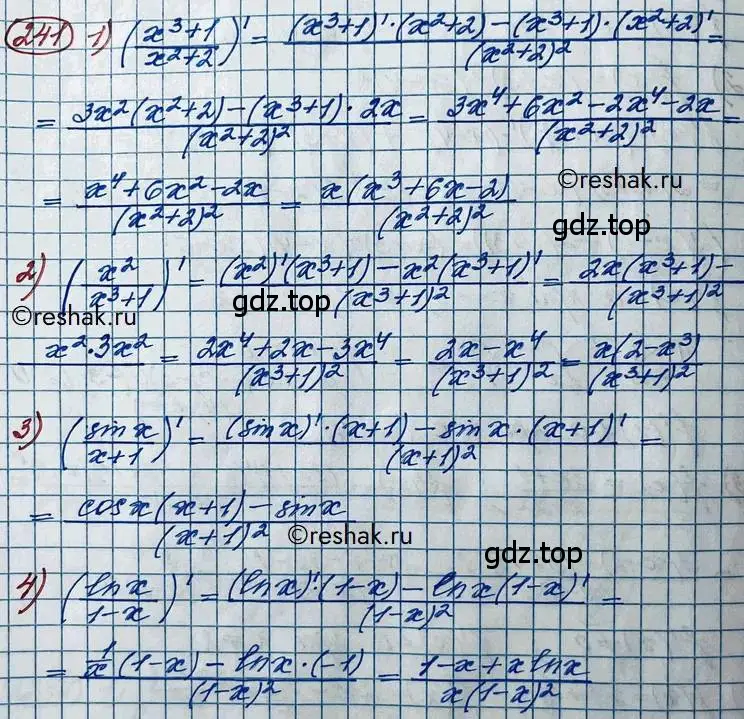 241 1) ((x³+1)/(x²+2))' = ((x³+1)'·(x²+2) − (x³+1)·(x²+2)')/(x²+2)² =
= (3x²(x²+2) − (x³+1)·2x)/(x²+2)² = (3x⁴+6x²−2x⁴−2x)/(x²+2)² =
= (x⁴+6x²−2x)/(x²+2)² = (x(x³+6x−2))/(x²+2)²
©reshak.ru
gdz.top
2) (x²/(x³+1))' = ((x²)'(x³+1) − x²(x³+1)')/(x³+1)² = (2x(x³+1) −)/(x³+1)²
©reshak.ru
gdz.top
x²·3x² = (2x⁴+2x−3x⁴)/(x³+1)² = (2x−x⁴)/(x³+1)² = (x(2−x³))/(x³+1)²
3) (sinx/(x+1))' = ((sinx)'·(x+1) − sinx·(x+1)')/(x+1)² =
= (cosx(x+1) − sinx)/(x+1)²
©reshak.ru
gdz.top
4) (lnx/(1−x))' = ((lnx)'·(1−x) − lnx(1−x)')/(1−x)² =
= (1/x·(1−x) − lnx·(−1))/(1−x)² = (1−x+xlnx)/(x(1−x)²)